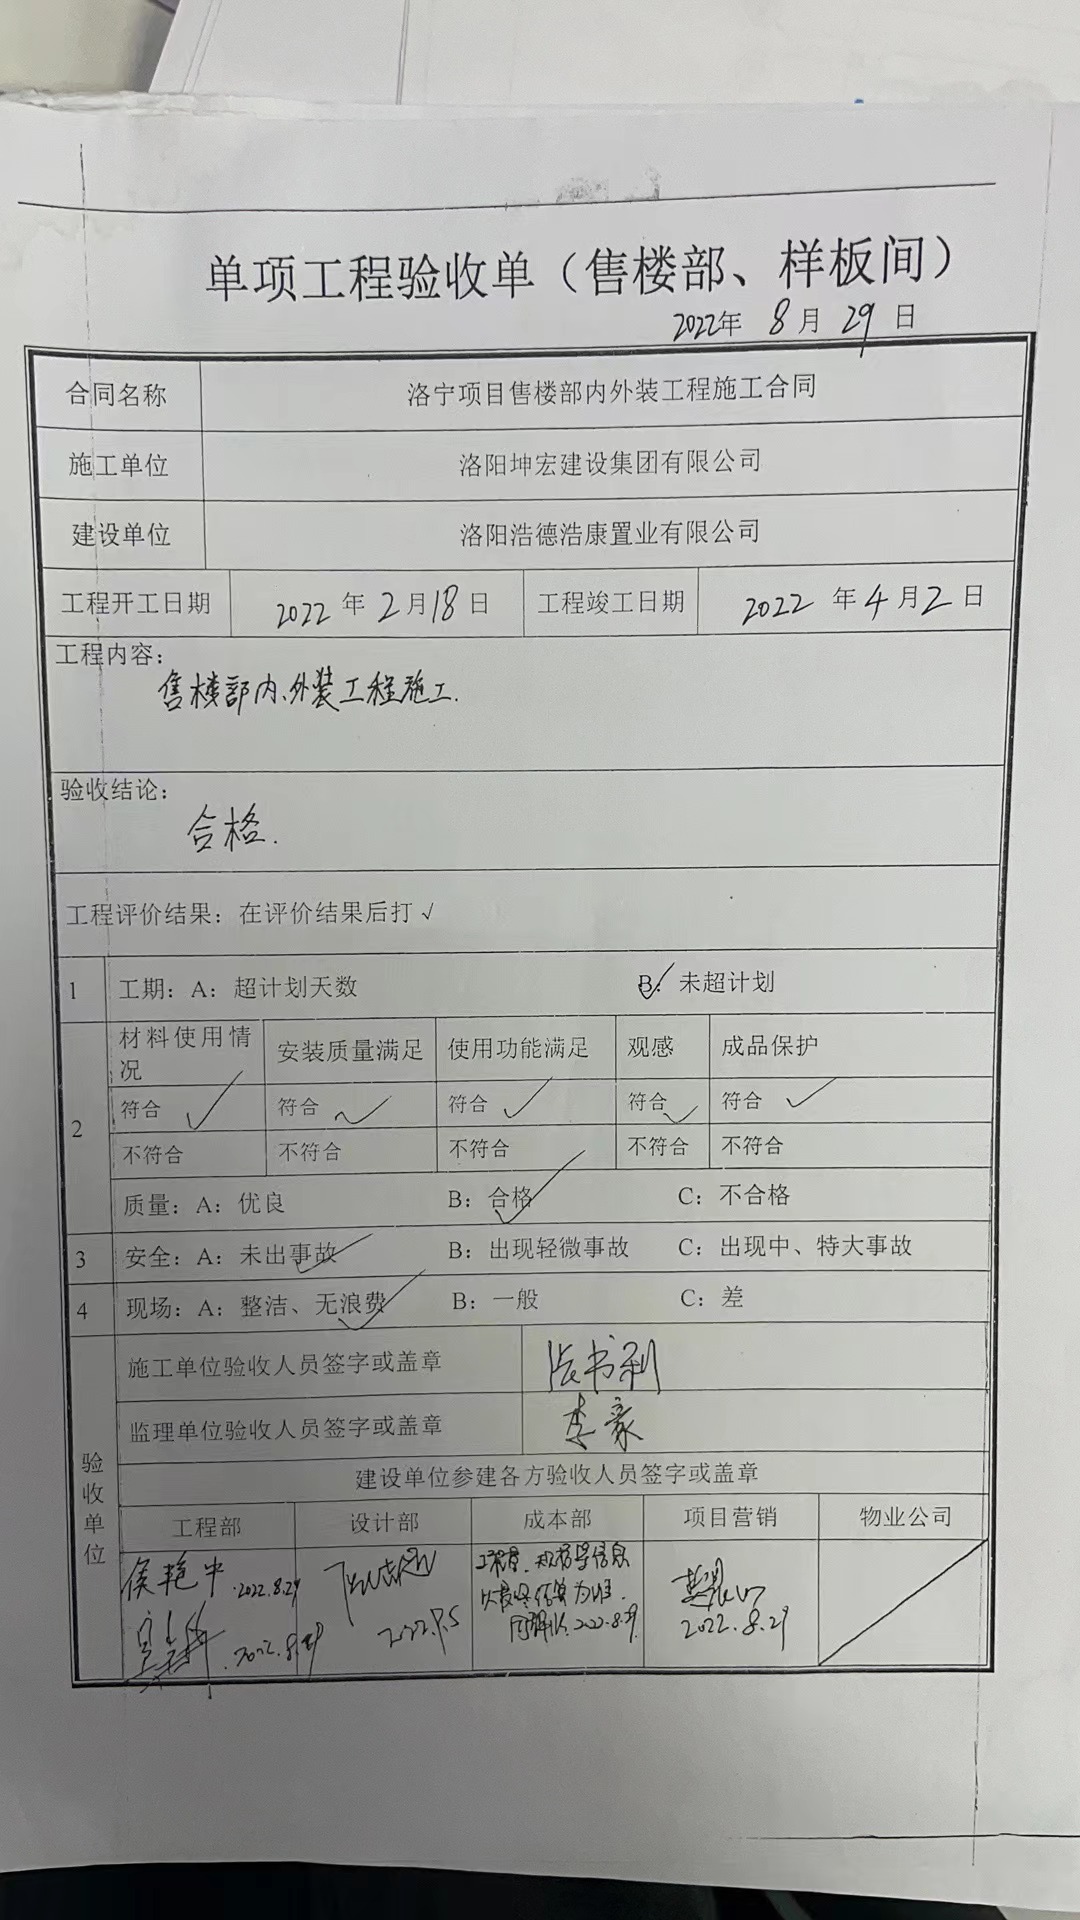 单项工程验收单（售楼部、样板间）
2022年 8月 29日
合同名称 洛宁项目售楼部内外装工程施工合同
施工单位 洛阳坤宏建设集团有限公司
建设单位 洛阳浩德浩康置业有限公司
工程开工日期 2022年2月18日 工程竣工日期 2022年4月2日
工程内容：
售楼部内、外装工程施工.
验收结论：
合格.
工程评价结果：在评价结果后打√
1 工期：A：超计划天数 B：未超计划 √
材料使用情况 安装质量满足 使用功能满足 观感 成品保护
2 符合 √ 符合 √ 符合 √ 符合 √ 符合 √
不符合 不符合 不符合 不符合 不符合
质量：A：优良 B：合格 √ C：不合格
3 安全：A：未出事故 √ B：出现轻微事故 C：出现中、特大事故
4 现场：A：整洁、无浪费 √ B：一般 C：差
验收单位
施工单位验收人员签字或盖章
监理单位验收人员签字或盖章 李豪
建设单位参建各方验收人员签字或盖章
工程部 设计部 成本部 项目营销 物业公司
侯艳中 2022.8.29
2022.8.29
以最终结算为准.
2022.8.29
2022.8.29